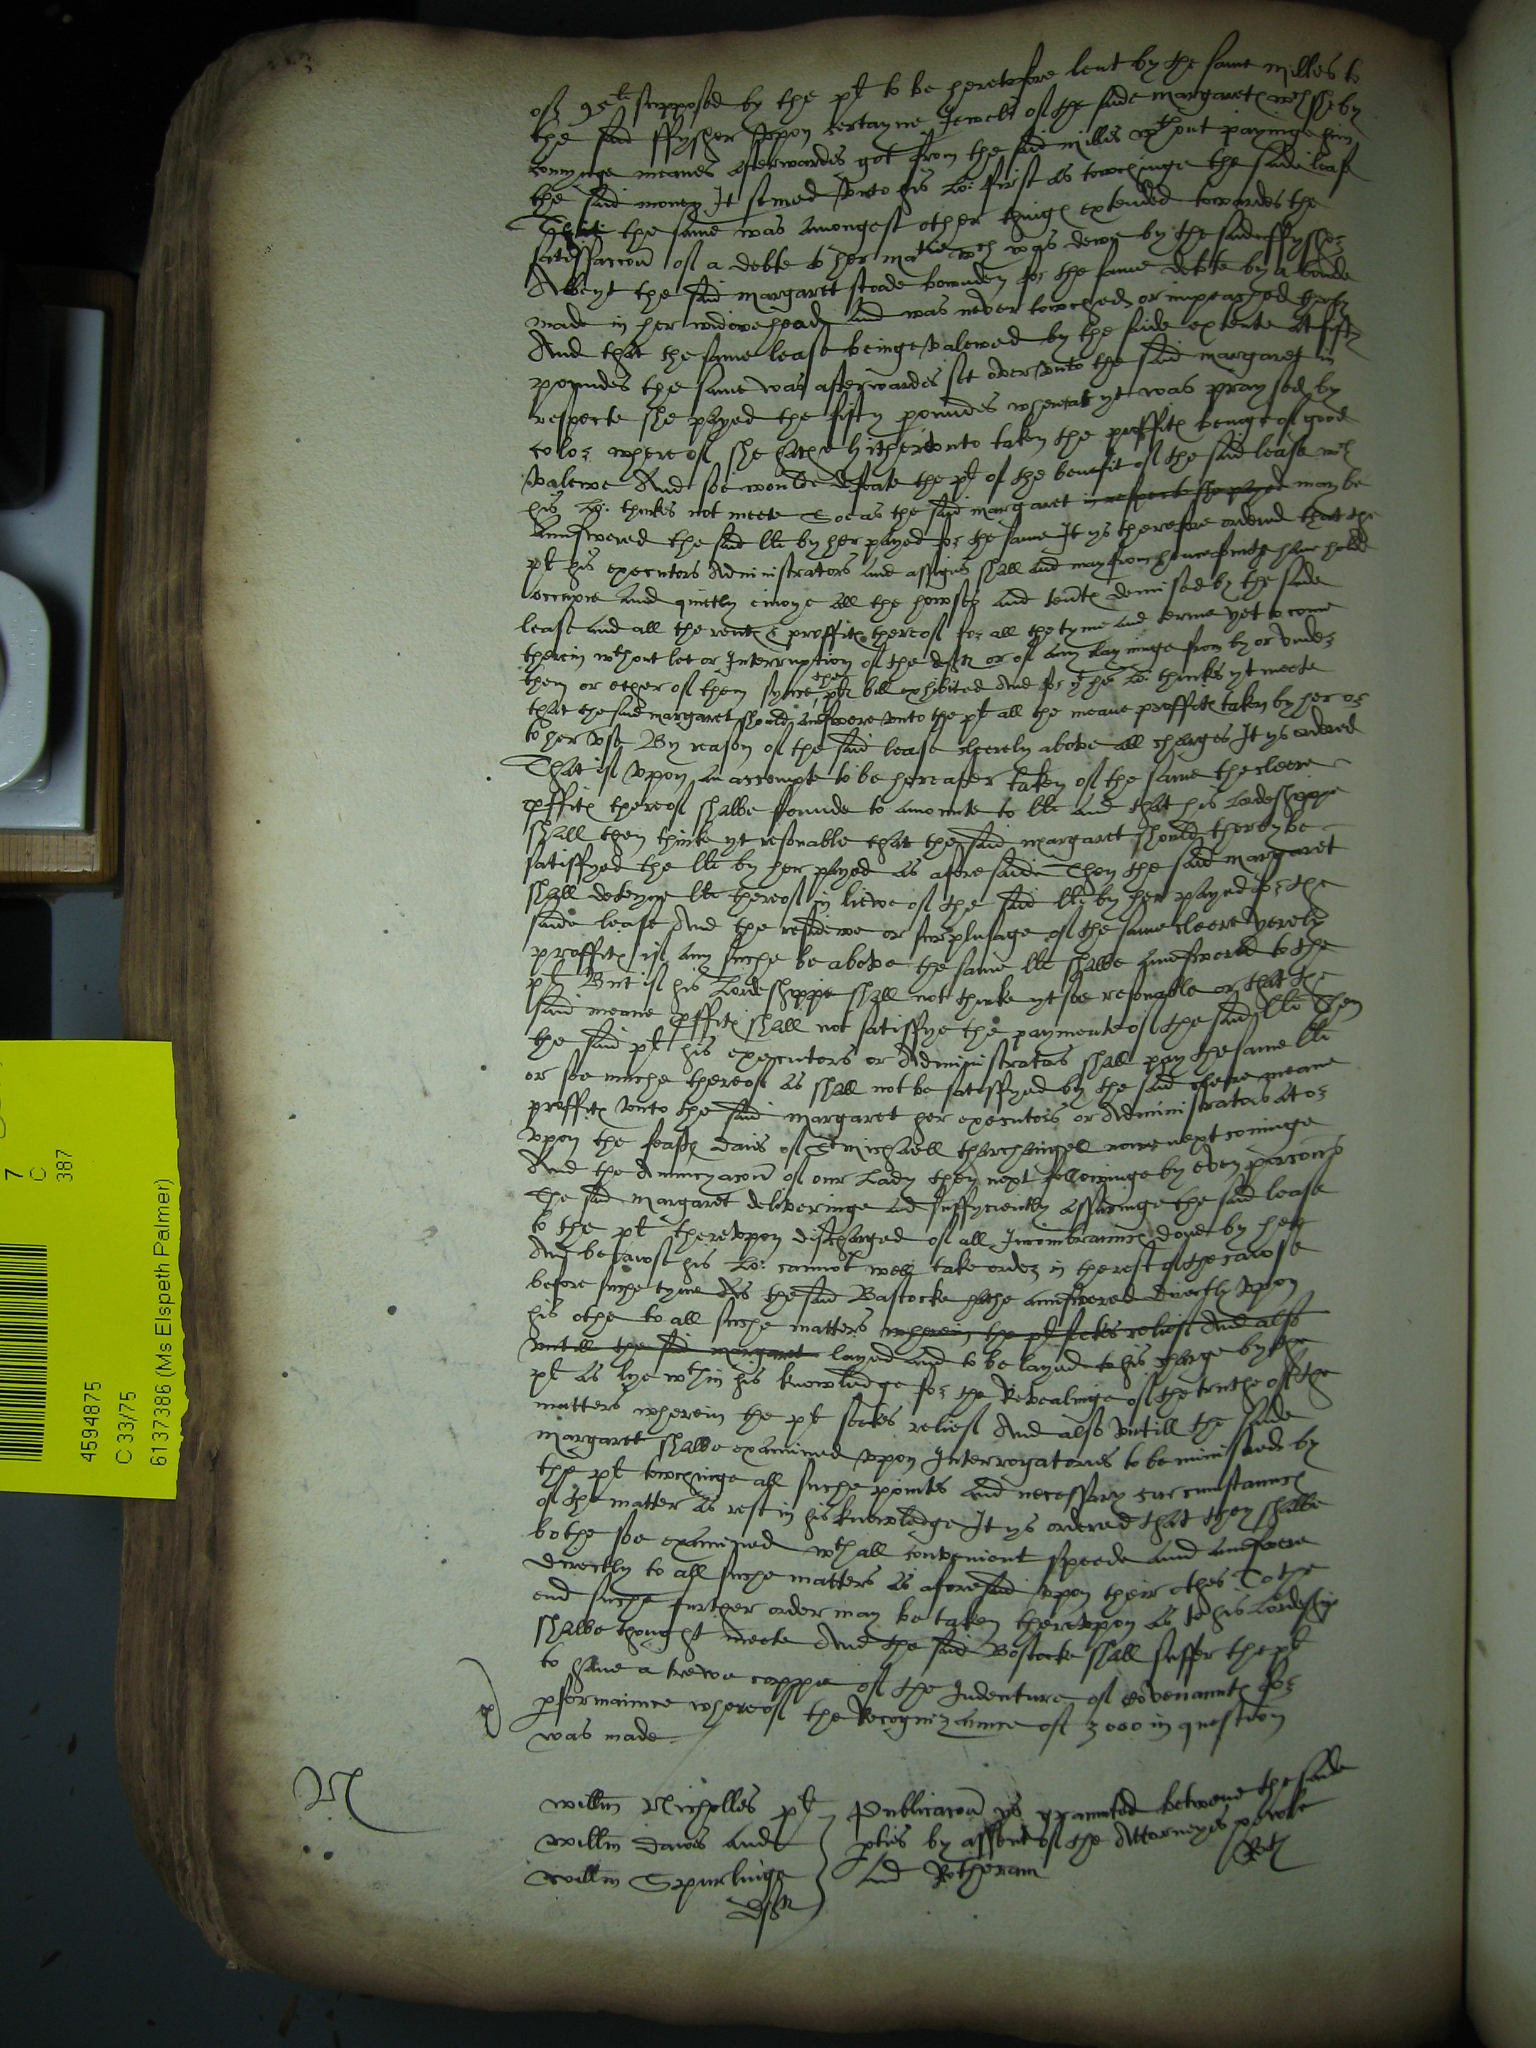 of 95li supposed by the plt to be heretofore lent by the same Milles to
the said ffyssher vpon certayne Jewels of the saide Margaretes wch she by
connynge meanes afterwardes got from the said Milles wthout payinge him
the said money It semed vnto his Lo: first as towchinge the saide lease
That the same was amongest other thinges extended towardes the
satisfaccon of a debte to her matie wch was dewe by the said ffyssher
Albeyt the said Margaret stoode bownden for the same debte by a bonde
made in her widowehead and was never towched or impeached therby
And that the same lease beinge valewed by the saide extente at fifty
poundes the same was afterwardes set over vnto the said Margaret in
respecte she payed the fifty poundes whereat yt was praysed by
color whereof she hathe hithervnto taken the proffites beinge of good
valewe And soe woulde defeate the plt of the benefit of the said lease wch
his Lp: thinkes not meete Soe as the said Margaret in respecte she payed may be
aunswered the said lli by her payed for the same It ys therefore ordered that the
plt his executors Administrators and assignes shall and may from hencefourthe have holde
occupie and quietly enioye all the howses and tentes demised by the saide
lease and all the rentes & proffites thereof for all the tyme and terme yet to come
therein wthout let or Interruption of the deftes or of any clayminge from by or vnder
them or ether of them synce the plt bill exhibited And for yt his Lo: thinkes yt meete
that the said Margaret should aunswere vnto the plt all the meane proffites taken by her or
to her vse By reason of the said lease cleerely above all charges It ys ordered
That if vpon an accompte to be hereafter taken of the same the cleere
pffites thereof shalbe founde to amounte to lli and that his Lordeshippe
shall then thinke yt resonable that the said Margaret should thereby be
satisfyed the lli by her payed as aforesaide Then the said Margaret
shall deteyne lli thereof in liewe of the said lli by her payed for the
saide lease And the residewe or surplusage of the same cleere yerely
proffites if any suche be above the same lli shalbe aunswered to the
plt But if his Lordeshippe shall not thinke yt soe resonable or that the
said meane pffites shall not satisfye the paymente of the said lli Then
the said plt his executors or Administrators shall pay the same lli
or soe muche thereof as shall not be satisfyed by the said cleere meane
proffites vnto the said Margaret her executors or Administrators at or
vpon the feast daies of St Michaell tharchangell nowe next cominge
And the Annuncyacon of our Lady then next followinge by even porcons
The said Margaret deliveringe and suffyciently assuringe the said lease
to the plt therevpon discharged of all Incombraunces done by her
And because his Lo: cannot well take order in therest of the cawse
before suche tyme as the said Bastocke hathe aunswered directly vpon
his othe to all suche matters wherein the plt seekes relief And also
vntill the said Margaret layed and to be layed to his charge by the
plt as lye wthin his knowledge for the Revealinge of the truthe of the
matters wherein the plt seekes relief And also vntill the saide
Margaret shalbe examined vpon Interrogatories to be ministred by
the plt towchinge all suche pointes and necessary circumstances
of the matter as rest in his knowledge It ys ordered that they shalbe
bothe soe examined wth all convenient speede and aunswere
directly to all suche matters as aforesaid vpon their othes To the
end suche further order may be taken therevpon as to his Lordeship
shalbe thought meete And the said Bostocke shall suffer the plt
to have a trewe coppie of the Indenture of Covenauntes for
pformaunce whereof the Recognizaunce of 3000 in question
was made
Willm Nicholles plt
Willm Davis and
Willm Spurlinge
deftes
Publicacon ys graunted betwene the saide
pties by assent of the Attorneyes powle
and Rotheram
4594875
C 33/75
6137386 (Ms Elspeth Palmer)
7
C
387